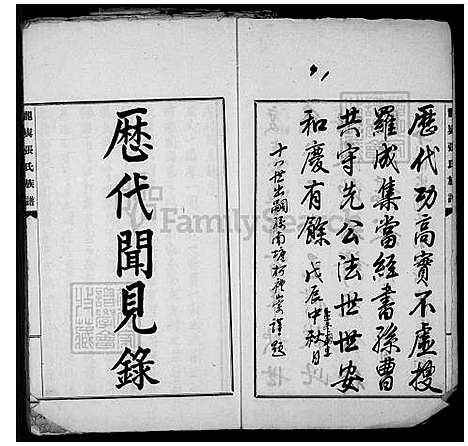 歷代功高實不虛搜
羅成集當經書孫曹
共守先公法世世安
和慶有餘 戊辰中秋日
十八世出嗣孫南塘
謹題
歷代聞見錄
龍
張氏族譜
FamilySearch